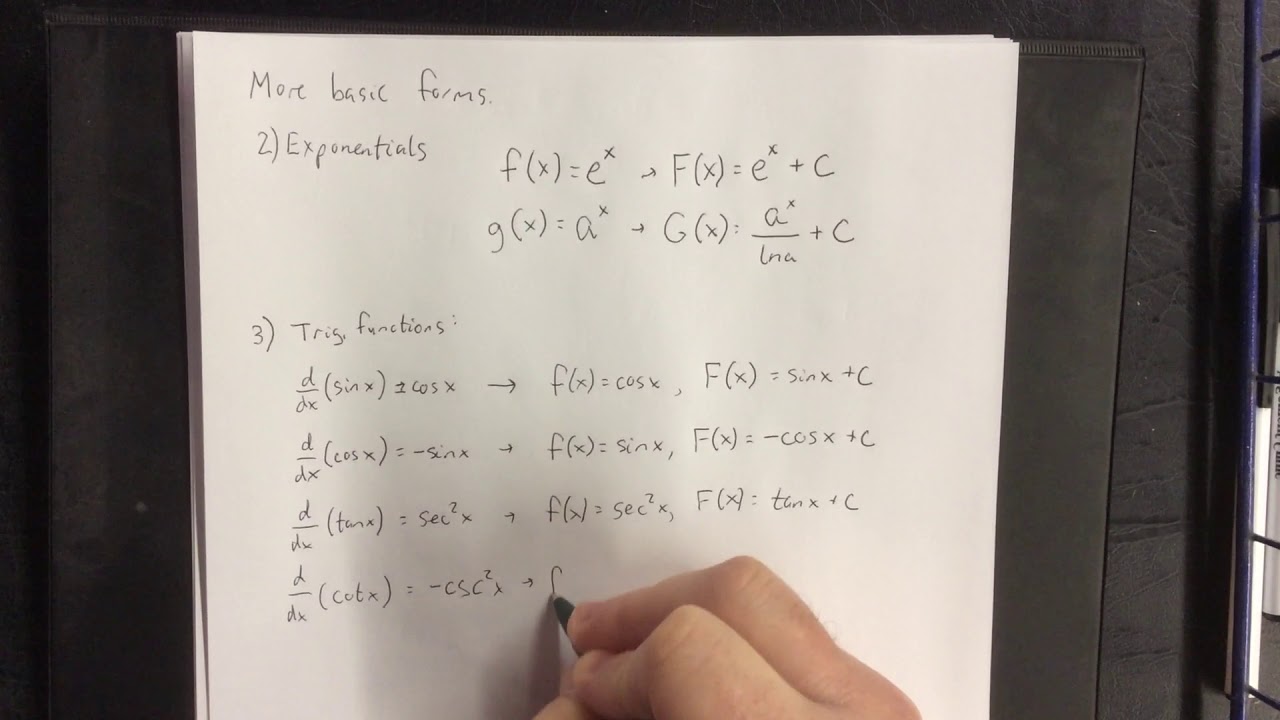 More basic forms.
2) Exponentials
f(x) = e^x → F(x) = e^x + C
g(x) = a^x → G(x) = a^x / ln a + C
3) Trig. functions:
d/dx (sinx) = cosx → f(x) = cosx, F(x) = sinx + C
d/dx (cosx) = -sinx → f(x) = sinx, F(x) = -cosx + C
d/dx (tanx) = sec²x → f(x) = sec²x, F(x) = tanx + C
d/dx (cotx) = -csc²x → f